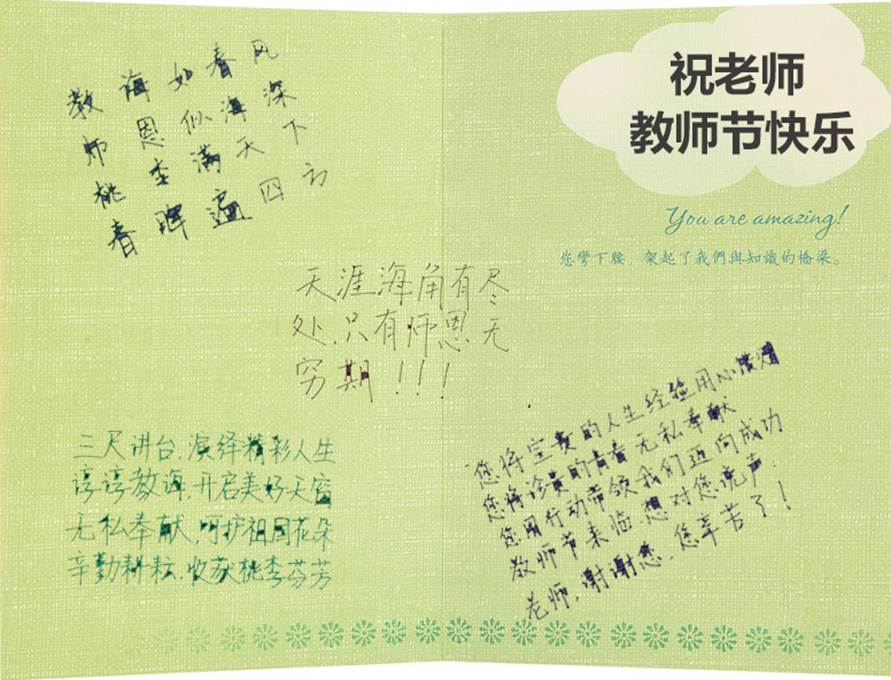 教诲如春风
师恩似海深
桃李满天下
春晖遍四方
天涯海角有尽
处,只有师恩无
穷期!!!
三尺讲台,演绎精彩人生
谆谆教诲,开启美好天窗
无私奉献,呵护祖国花朵
辛勤耕耘,收获桃李芬芳
祝老师
教师节快乐
You are amazing!
您彎下腰 架起了我們與知識的橋梁。
您将宝贵的人生经验用心浇灌
您将珍贵的青春无私奉献
您用行动带领我们迈向成功
教师节来临,想对您说声:
老师,谢谢您,您辛苦了!